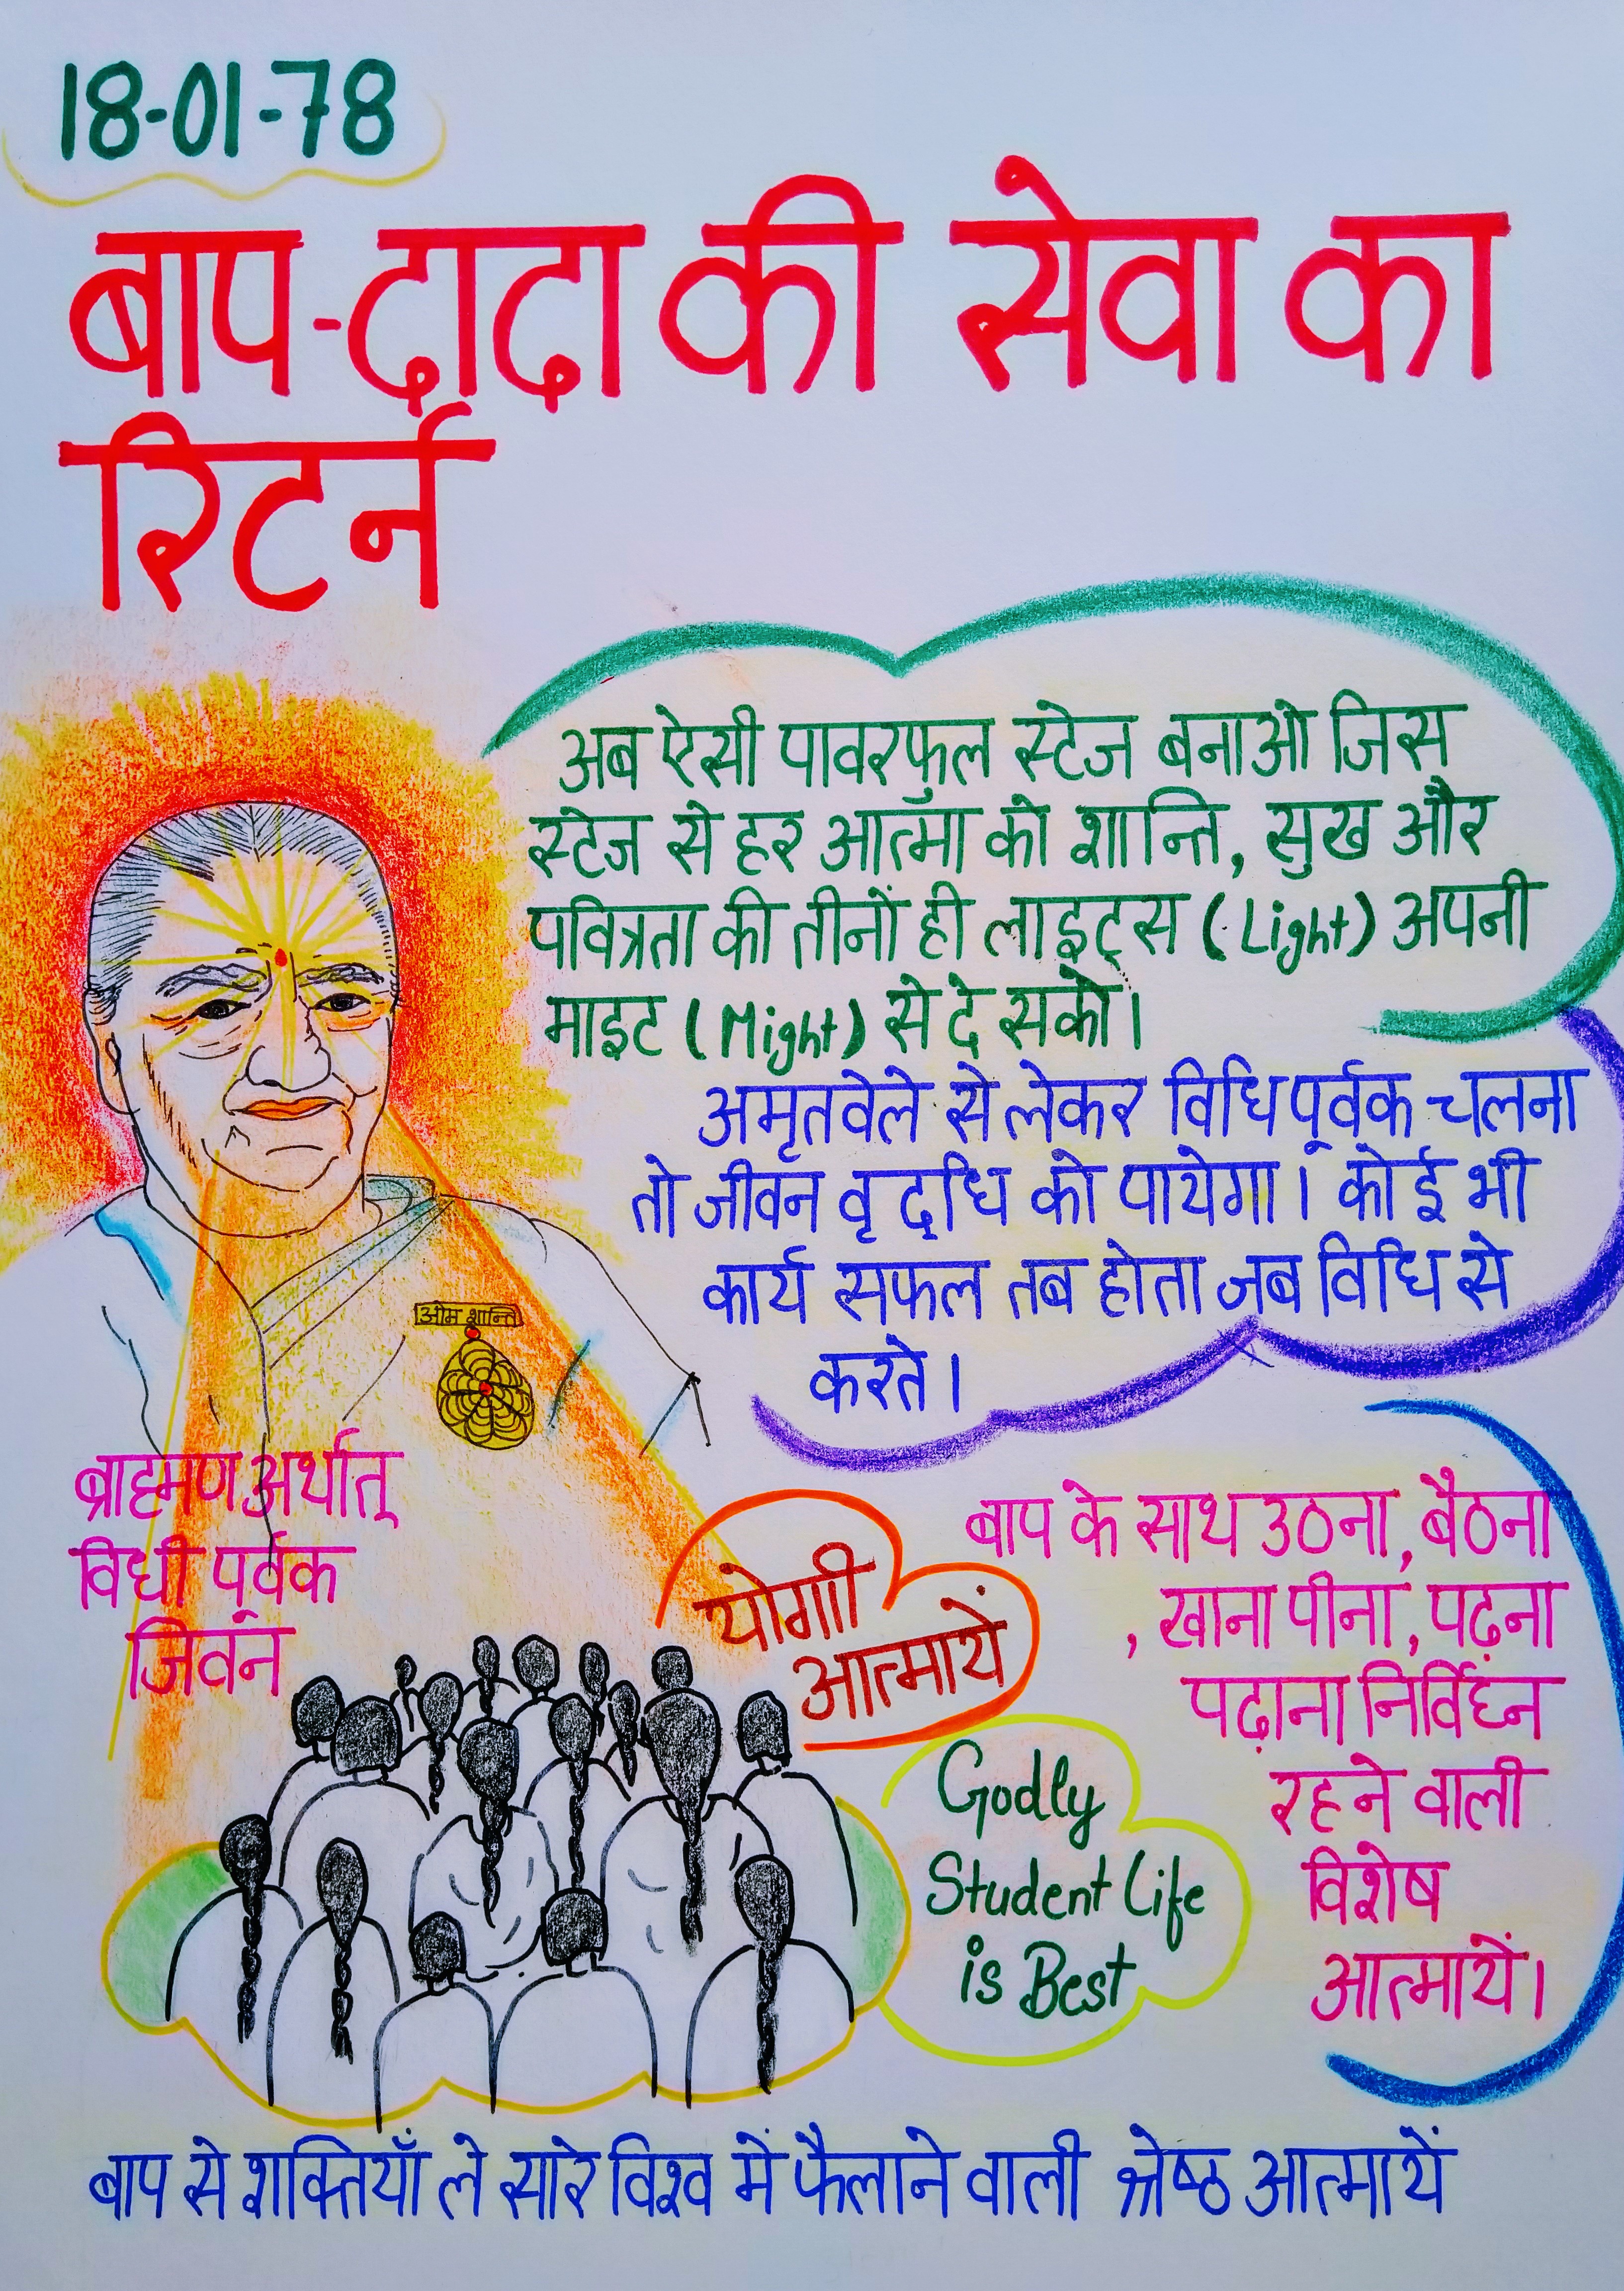 18-01-78
बाप-दादा की सेवा का
रिटर्न
अब ऐसी पावरफुल स्टेज बनाओ जिस
स्टेज से हर आत्मा को शान्ति, सुख और
पवित्रता की तीनों ही लाइट्स (Light) अपनी
माइट (Might) से दे सको।
अमृतवेले से लेकर विधिपूर्वक चलना
तो जीवन वृद्धि को पायेगा। कोई भी
कार्य सफल तब होता जब विधि से
करते।
ओम शान्ति
ब्राह्मण अर्थात्
विधी पूर्वक
जिवन
योगी
आत्मायें
बाप के साथ उठना, बैठना
, खाना पीना, पढ़ना
पढ़ाना निर्विघ्न
रहने वाली
विशेष
आत्मायें।
Godly
Student Life
is Best
बाप से शक्तियाँ ले सारे विश्व में फैलाने वाली श्रेष्ठ आत्मायें